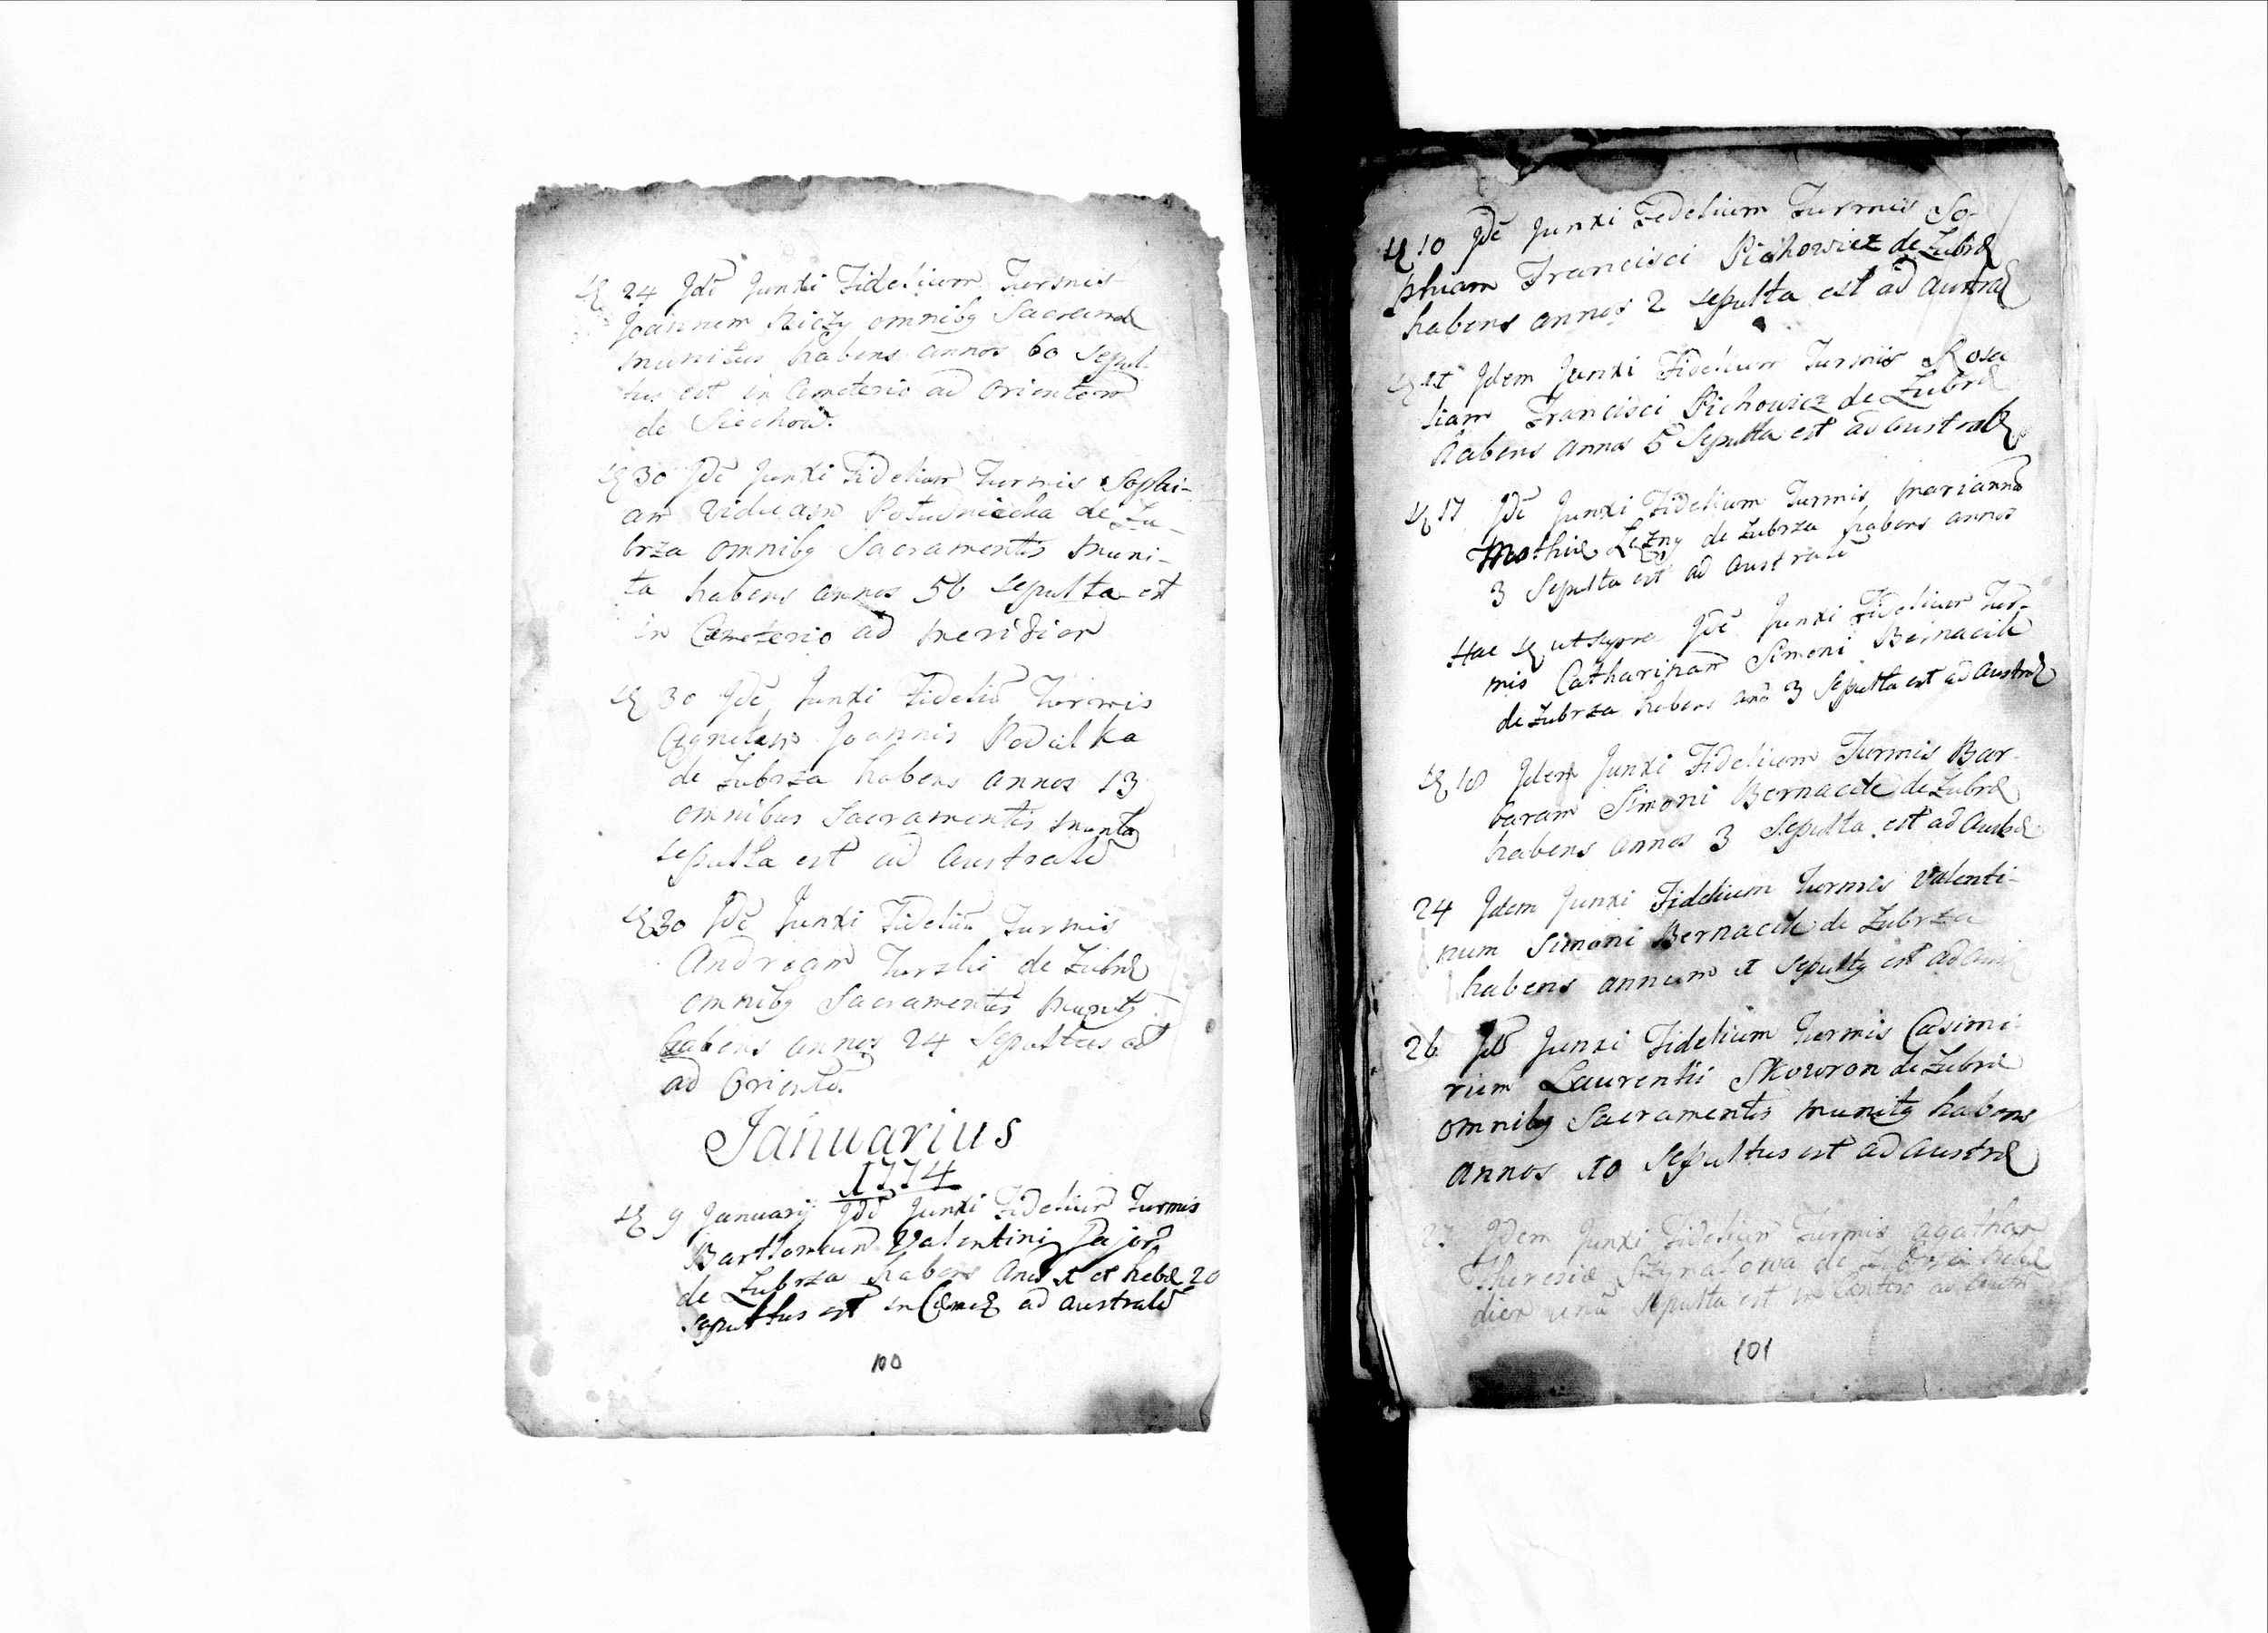 24 Idē Junxi Fidelium Turmis
Joannem omnibꝫ Sacramē
munitus habens annos 60 Sepul-
tus est in Cemeterio ad Orientem
de Siechow.
30 Idē Junxi Fidelium Turmis Sophi-
am Viduam de Zu-
brza omnibꝫ Sacramentis muni-
ta habens annos 56 sepulta est
in Cemeterio ad meridiem
30 Idē Junxi Fideliū Turmis
Agnetem Joannis Podalka
de Zubrza habens annos 13
omnibus Sacramentis munita
sepulta est ad Australē
30 Idē Junxi Fideliū Turmis
Andream de Zubrē
omnibꝫ Sacramentis munitꝫ
habens annos 24 Sepultus est
ad Orientē.
Januarius
1774
9 Januarij Idē Junxi Fideliū Turmis
Bartlomeum Valentini
de Zubrza habens 1 et hebd 20
sepultus est in ad Australē
10 Idē Junxi Fidelium Turmis So-
phiam Francisci Pichowicz de Zubrē
habens annos 2 sepulta est ad Austral
Idem Junxi Fidelium Turmis Rosa
liam Francisci Pichowicz de Zubrē
habens annos 5 Sepulta est ad Austral
17 Idē Junxi Fidelium Turmis Mariannā
Mathiæ Lezny de Zubrza habens annos
3 Sepulta est ad Australē
Hac ut supra Idē Junxi Fidelium Tur-
mis Catharinam Simoni Bernacik
de Zubrza habens 3 Sepulta est ad Austral
18 Idem Junxi Fidelium Turmis Bar-
baram Simoni Bernacik de Zubrē
habens annos 3 Sepulta est ad Austrē
24 Idem Junxi Fidelium Turmis Valenti-
num Simoni Bernacik de Zubrza
habens annum 1 Sepultꝫ est ad
26 Idē Junxi Fidelium Turmis Casimi-
rum Laurentii Skowron de Zubrē
omnibꝫ Sacramentis munitꝫ habens
annos 10 Sepultus est ad Austrē
Idem Junxi Fidelium Turmis Agatham
Theresiæ de
diem unā Sepulta est in ad
100
101